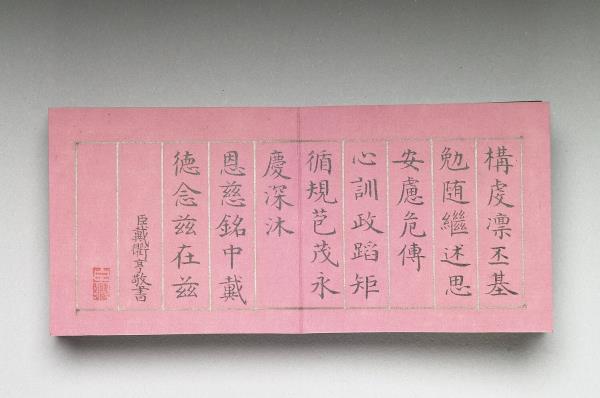 構虔凛丕基
勉随繼述思
安慮危傳
心訓政蹈矩
循規芑茂永
慶深沐
恩慈銘中戴
德念兹在兹
臣戴衢亨敬書